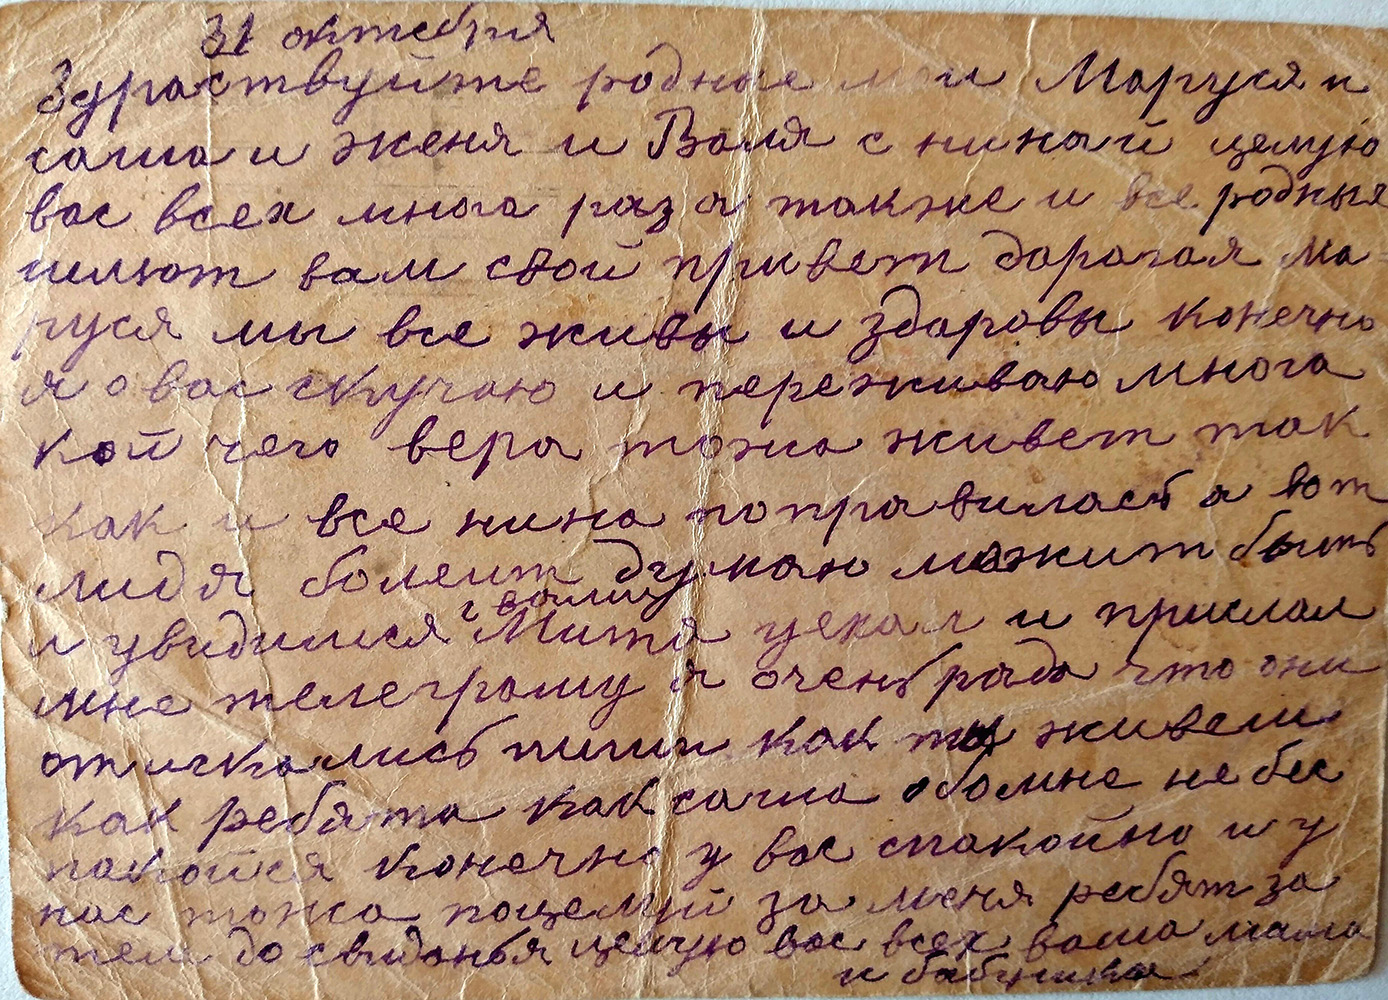 31 октебря
Здраствуйте родные мои Маруся и
саша и женя и Валя с ниной целую
вас всех многа раз а также и все родныя
шлют вам свой привет дарагая ма-
руся мы все живы и здаровы конечно
я о вас скучаю и переживаю многа
кой чего вера тожа живет так
как и все нина поправиласъ а вот
лидя болеит думаю можит быть
и увидимся с вами Митя уехал и прислал
мне телеграму я оченъ рада что они
отыскалисъ пиши как ты живеш
как ребята как саша обо мне не бес
пакойся конечно у вас спакойно и у
нас тожа поцелуй за меня ребят за
тем до свиданъя целую вас всех ваша мама
и бабушка